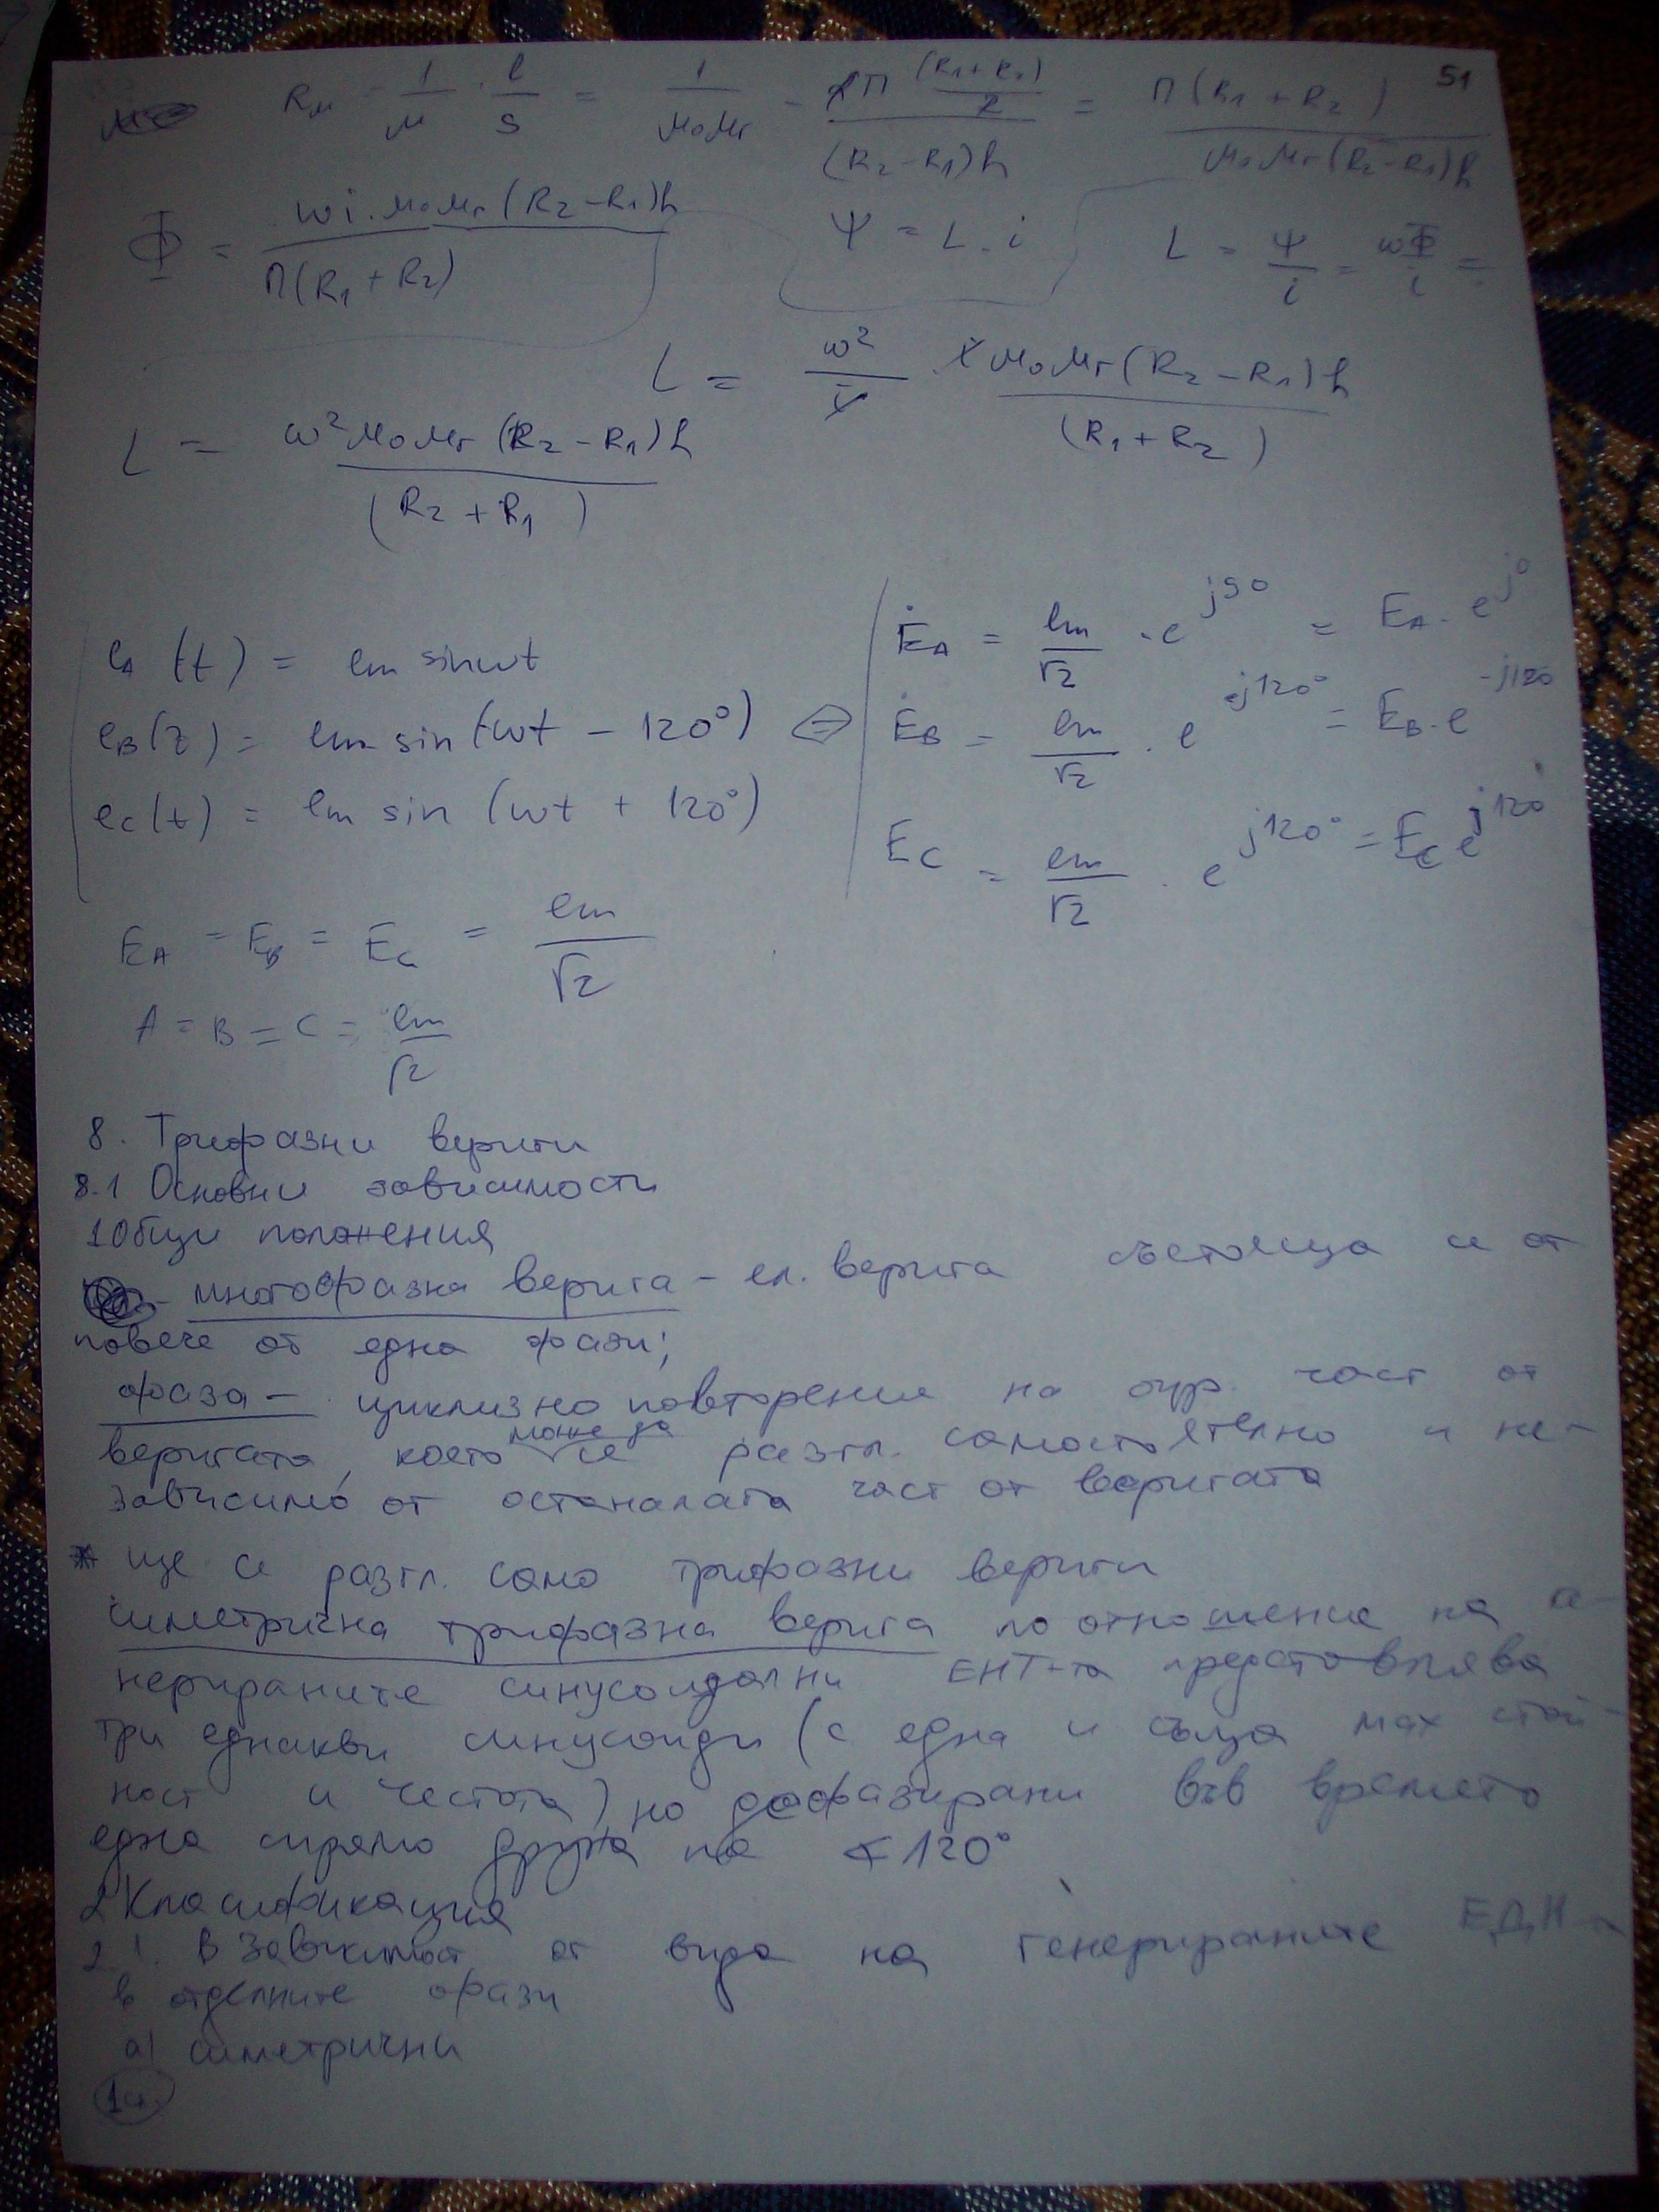 51
Rμ = 1/μ · l/s = 1/μ₀μr · 2П (R₁+R₂)/2 / (R₂−R₁)h = П(R₁+R₂) / μ₀μr(R₂−R₁)h
Φ = wi.μ₀μr(R₂−R₁)h / П(R₁+R₂)   Ψ = L.i   L = Ψ/i = wΦ/i =
L = w²/i · i μ₀μr(R₂−R₁)h / (R₁+R₂)
L = w²μ₀μr(R₂−R₁)h / (R₂+R₁)
e_A(t) = em sinwt   Ė_A = em/√2 · e^j0 = E_A . e^j0
e_B(t) = em sin(wt − 120°) ⇔ Ė_B = em/√2 . e^-j120° = E_B . e^-j120
e_C(t) = em sin (wt + 120°)   E_C = em/√2 . e^j120° = E_C e^j120
E_A = E_B = E_C = em/√2
A = B = C = em/√2
8. Трифазни вериги
8.1 Основни зависимости
1 Общи положения
- многофазна верига – ел. верига състояща се от
повече от една фази;
фаза – циклизно повторение на опр. част от
веригата, което може да се разгл. самостоятелно и не-
зависимо от останалата част от веригата
* ще се разгл. само трифазни вериги
симетрична трифазна верига по отношение на ге-
нерираните синусоидални ЕНТ-та представлява
три еднакви синусоиди (с една и съща max стой-
ност и честота) но дефазирани във времето
една спрямо друга на ∢ 120°
2 Класификация
2.1. В зависимост от вида на генерираните ЕДН
в отделните фази
а) симетрични